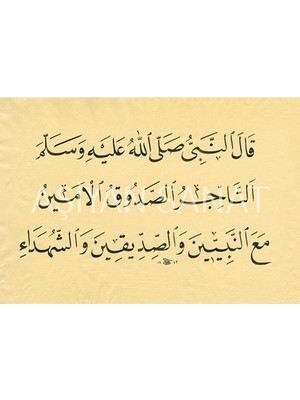 قَالَ النَّبِيُّ صَلَّى اللهُ عَلَيْهِ وَسَلَّمَ
اَلتَّاجِرُ الصَّدُوقُ الْاَمِينُ
ASHAN SANAT
مَعَ النَّبِيِّينَ وَالصِّدِّيقِينَ وَالشُّهَدَاءِ